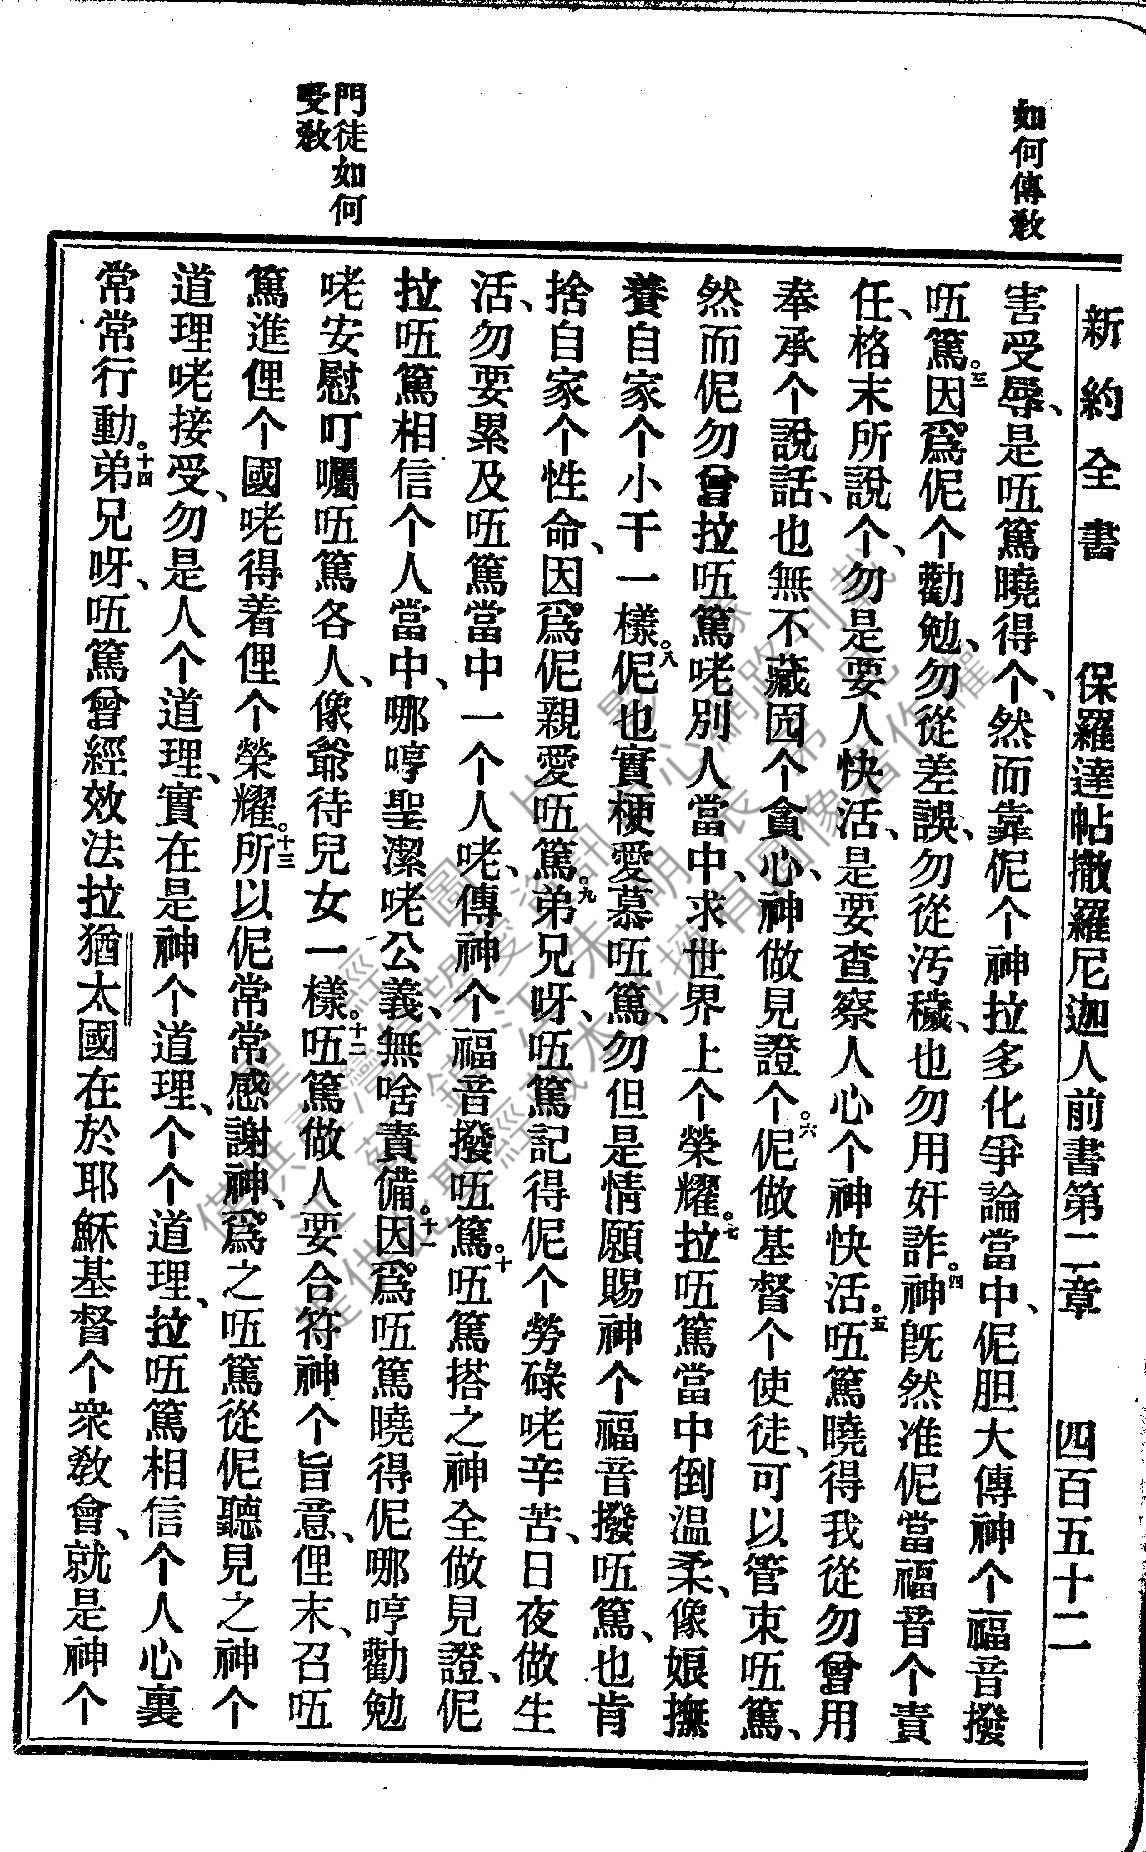 如何傳教
門徒如何
受教
新約全書 保羅達帖撒羅尼迦人前書第二章 四百五十二
害受辱、是㕶篤曉得个、然而靠伲个神拉多化爭論當中、伲胆大傳神个福音撥
㕶篤。三因爲伲个勸勉、勿從差誤、勿從汚穢、也勿用奸詐。四神旣然准伲當福音个責
任、格末所說个、勿是要人快活、是要查察人心个神快活。五㕶篤曉得我從勿曾用
奉承个說話、也無不藏囥个貪心、神做見證个。六伲做基督个使徒、可以管束㕶篤、
然而伲勿曾拉㕶篤咾別人當中、求世界上个榮耀。七拉㕶篤當中倒温柔、像娘撫
養自家个小干一樣。八伲也實梗愛慕㕶篤、勿但是情願賜神个福音撥㕶篤、也肯
捨自家个性命、因爲伲親愛㕶篤。九弟兄呀、㕶篤記得伲个勞碌咾辛苦、日夜做生
活、勿要累及㕶篤當中一个人咾、傳神个福音撥㕶篤。十㕶篤搭之神全做見證、伲
拉㕶篤相信个人當中、哪哼聖潔咾公義、無啥責備。十一因爲㕶篤曉得伲哪哼勸勉
咾安慰叮囑㕶篤各人、像爺待兒女一樣。十二㕶篤做人要合符神个旨意、俚末、召㕶
篤進俚个國咾得着俚个榮耀。十三所以伲常常感謝神、爲之㕶篤從伲聽見之神个
道理咾接受、勿是人个道理、實在是神个道理、个个道理、拉㕶篤相信个人心裏
常常行動。十四弟兄呀、㕶篤曾經效法拉猶太國在於耶穌基督个衆敎會、就是神个